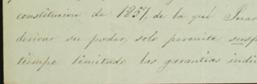 constitucion de 1857, de la que Juar
derivar su poder, solo permite susp
tiempo limitado las garantias indi